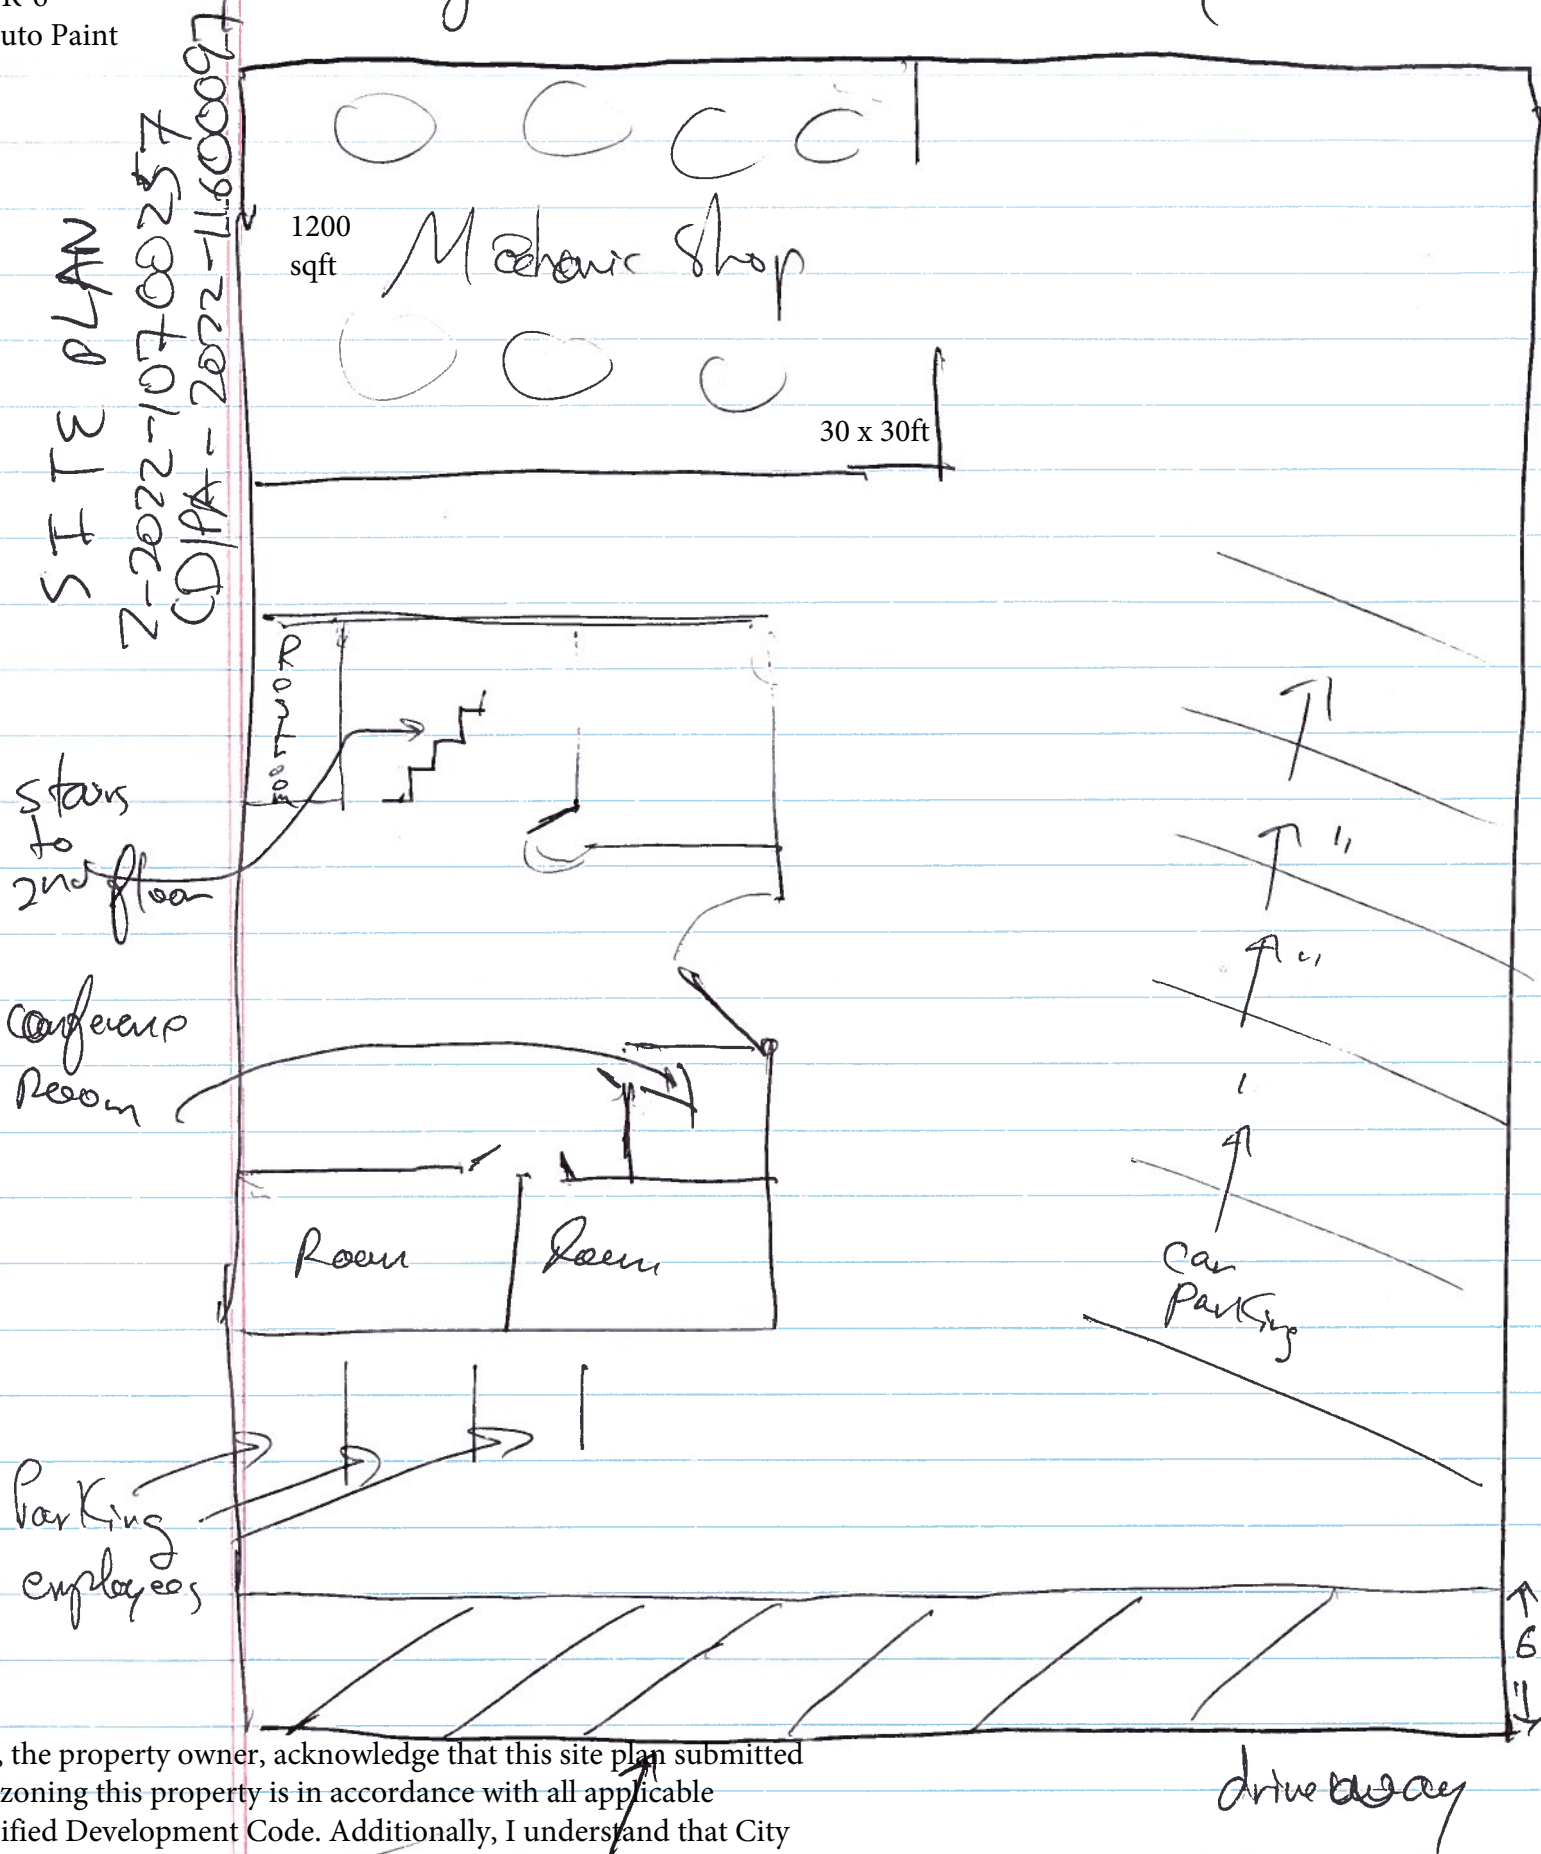 R-6
uto Paint
SITE PLAN
Z-2022-10700257
CD/PA-2022-11600097
1200
sqft
Mechanic Shop
30 x 30ft
RESTROOM
stairs
to
2nd floor
conference
Room
Room Room
car
parking
Parking
employees
6"
driveaway
, the property owner, acknowledge that this site plan submitted
zoning this property is in accordance with all applicable
ified Development Code. Additionally, I understand that City